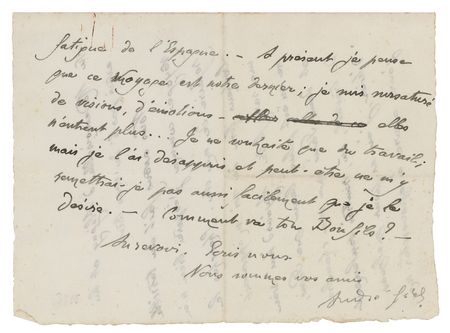 fatigue de l'Espagne. — A présent je pense
que ce voyage est notre dernier; je suis sursaturé
de visions, d'émotions — elles
n'entrent plus... Je ne souhaite que du travail;
mais je l'ai désappris et peut-être ne m'y
remettrai-je pas aussi facilement que je le
désire. — Comment va ton Bonfils? —
Au revoir. Ecris nous
Nous sommes vos amis
André Gide